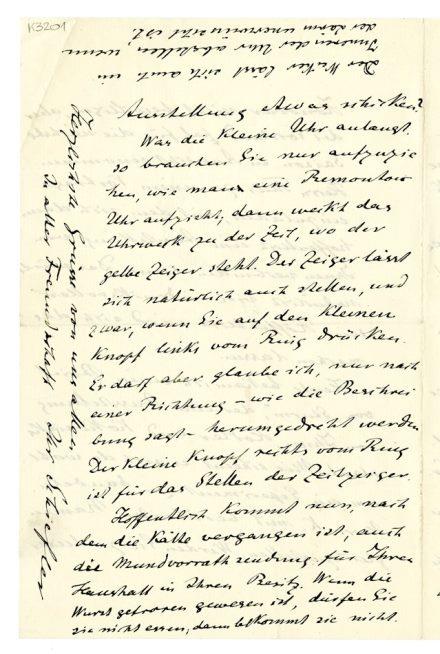 K3201
Ausstellung etwas schicken?
Was die kleine Uhr anlangt.
so brauchen Sie nur aufzuzie
hen, wie man eine Remontoir
Uhr aufzieht; dann weckt das
Uhrwerk zu der Zeit, wo der
gelbe Zeiger steht. Der Zeiger lässt
sich natürlich auch stellen, und
zwar, wenn Sie auf den kleinen
Knopf links vom Ring drücken.
Er darf aber glaube ich, nur nach
einer Richtung – wie die Beschrei
bung sagt – herumgedreht werden
Der kleine Knopf rechts vom Ring
ist für das Stellen der Zeitzeiger.
Hoffentlich kommt nun, nach
dem die Kälte vergangen ist, auch
die Mundvorrathsendung für Ihren
Haushalt in Ihren Besitz. Wenn die
Wurst gefroren gewesen ist, dürfen Sie
sie nicht essen, dann bekommt sie nicht.
Herzlichste Grüsse von uns allen
In alter Freundschaft Ihr Schiefler
Der Wecker lässt sich auch im
Inneren der Uhr abstellen, wenn
der Lärm unerwünscht ist.